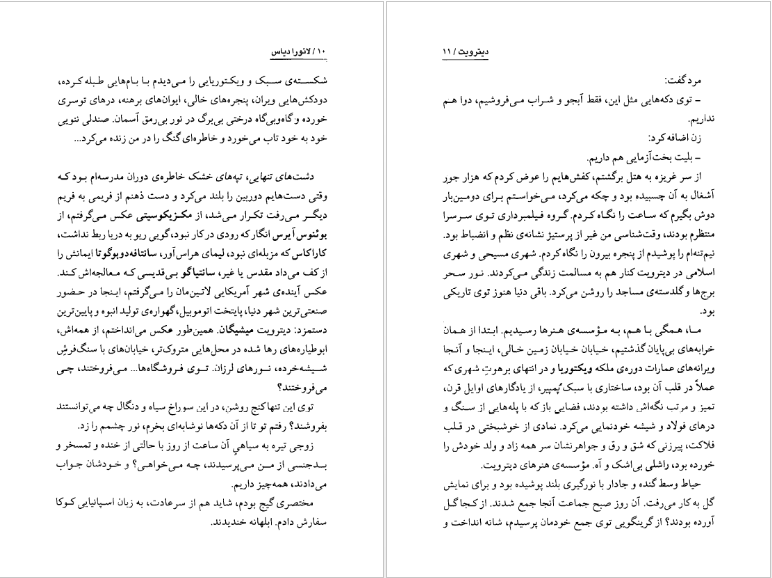 ۱۰ / لائورا دیاس
شکسته‌ی سبک و ویکتوریایی را می‌دیدم با بام‌هایی طبله کرده،
دودکش‌هایی ویران، پنجره‌های خالی، ایوان‌های برهنه، درهای توسری
خورده و گاه‌وبی‌گاه درختی بی‌برگ در نور بی‌رمق آسمان. صندلی ننویی
خود به خود تاب می‌خورد و خاطره‌ای گنگ را در من زنده می‌کرد...
دشت‌های تنهایی، تپه‌های خشک خاطره‌ی دوران مدرسه‌ام بود که
وقتی دست‌هایم دوربین را بلند می‌کرد و دست ذهنم از فریمی به فریم
دیگر می‌رفت تکرار می‌شد، از مکزیکوسیتی عکس می‌گرفتم، از
بوئنوس آیرس انگار که رودی در کار نبود، گویی ریو به دریا ربط نداشت،
کاراکاس که مزبله‌ای نبود، لیمای هراس‌آور، سانتافه‌دوبوگوتا ایمانش را
از کف می‌داد مقدس یا غیر، سانتیاگو بی‌قدیسی که معالجه‌اش کند.
عکس آینده‌ی شهر آمریکایی لاتین‌مان را می‌گرفتم، اینجا در حضور
صنعتی‌ترین شهر دنیا، پایتخت اتوموبیل، گهواره‌ی تولید انبوه و پایین‌ترین
دستمزد: دیترویت میشیگان. همین‌طور عکس می‌انداختم، از همه‌اش،
ابوطیاره‌های رها شده در محل‌هایی متروک‌تر، خیابان‌های با سنگ‌فرش
شیشه‌خرده، نورهای لرزان. توی فروشگاه‌ها... می‌فروختند، چی
می‌فروختند؟
توی این تنها کنج روشن، در این سوراخ سیاه و دنگال چه می‌توانستند
بفروشند؟ رفتم تو تا از آن دکه‌ها نوشابه‌ای بخرم، نور چشمم را زد.
زوجی تیره به سیاهیِ آن ساعت از روز با حالتی از خنده و تمسخر و
بدجنسی از من می‌پرسیدند، چه می‌خواهی؟ و خودشان جواب
می‌دادند، همه‌چیز داریم.
مختصری گیج بودم، شاید هم از سر عادت، به زبان اسپانیایی کوکا
سفارش دادم. ابلهانه خندیدند.
دیترویت / ۱۱
مرد گفت:
– توی دکه‌هایی مثل این، فقط آبجو و شراب می‌فروشیم، دوا هم
نداریم.
زن اضافه کرد:
– بلیت بخت‌آزمایی هم داریم.
از سر غریزه به هتل برگشتم، کفش‌هایم را عوض کردم که هزار جور
آشغال به آن چسبیده بود و چکه می‌کرد، می‌خواستم برای دومین‌بار
دوش بگیرم که ساعت را نگاه کردم. گروه فیلمبرداری توی سرسرا
منتظرم بودند، وقت‌شناسی من غیر از پرستیژ نشانه‌ی نظم و انضباط بود.
نیم‌تنه‌ام را پوشیدم از پنجره بیرون را نگاه کردم. شهری مسیحی و شهری
اسلامی در دیترویت کنار هم به مسالمت زندگی می‌کردند. نور سحر
برج‌ها و گلدسته‌ی مساجد را روشن می‌کرد. باقی دنیا هنوز توی تاریکی
بود.
ما، همگی با هم، به مؤسسه‌ی هنرها رسیدیم. ابتدا از همان
خرابه‌های بی‌پایان گذشتیم، خیابان خیابان زمین خالی، اینجا و آنجا
ویرانه‌های عمارات دوره‌ی ملکه ویکتوریا و در انتهای برهوتِ شهری که
عملاً در قلب آن بود، ساختاری با سبک پُمپیر، از یادگارهای اوایل قرن،
تمیز و مرتب نگه‌اش داشته بودند، فضایی باز که با پله‌هایی از سنگ و
درهای فولاد و شیشه خودنمایی می‌کرد. نمادی از خوشبختی در قلب
فلاکت، پیرزنی که شق و رق و جواهرنشان سر همه زاد و ولد خودش را
خورده بود، راشلی بی‌اشک و آه. مؤسسه‌ی هنرهای دیترویت.
حیاط وسط گنده و جادار با نورگیری بلند پوشیده بود و برای نمایش
گل به کار می‌رفت. آن روز صبح جماعت آنجا جمع شدند. از کجا گل
آورده بودند؟ از گرینگویی توی جمع خودمان پرسیدم، شانه انداخت و